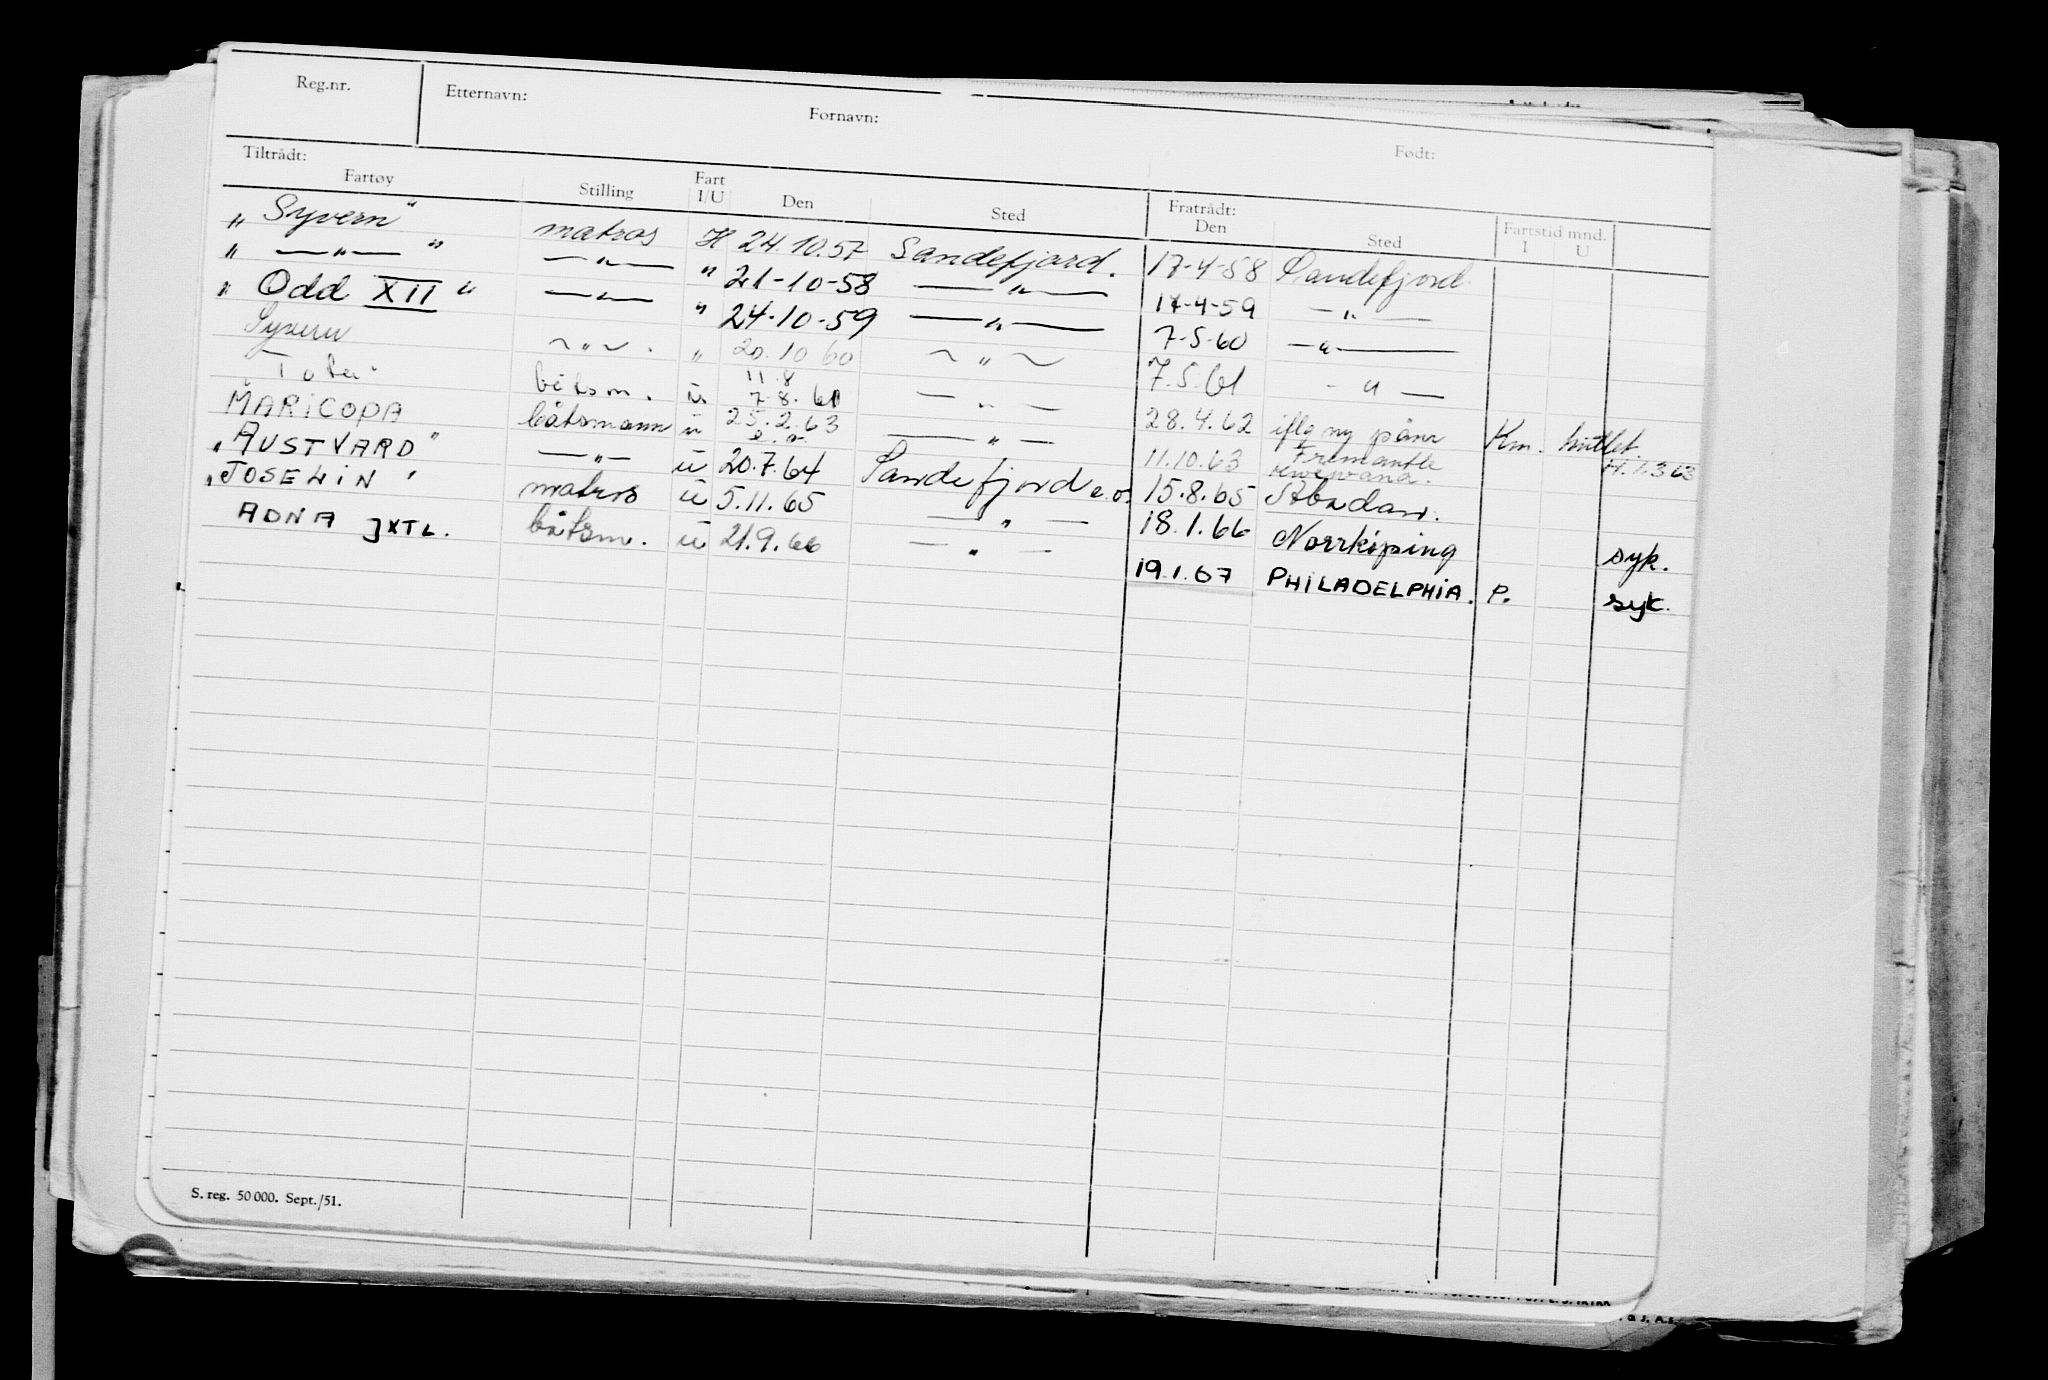 Reg.nr. Etternavn: Fornavn: Født:
Tiltrådt: Fratrådt:
Fartøy Stilling Fart I/U Den Sted Den Sted Fartstid mnd. I U
„ Syvern " matros H 24.10.57 Sandefjord. 17-4-58 Sandefjord.
„ —„— " —„— " 21-10-58 —„— 17-4-59 —„—
„ Odd XII " —„— " 24-10-59 —„— 7-5-60 —„—
Syvern ~„~. " 20.10 60 ~„~ 7.5.61 -„—
båtsm. u 11.8 7.8.61 —„— 28.4.62 iflg ny Km.
MARICOPA båtsmann u 25.2.63 —„— 11.10.63 Fremantle 1.3 63
„AUSTVARD" —„— u 20.7.64 Sandefjord e.o. 15.8.65 Abadan.
„JOSELIN ' matros u 5.11.65 —„— 18.1.66 Norrköping syk.
ADNA JXTL. båtsm. u 21.9.66 —„— 19.1.67 PHILADELPHIA. P. syk.
S. reg. 50 000. Sept./51.